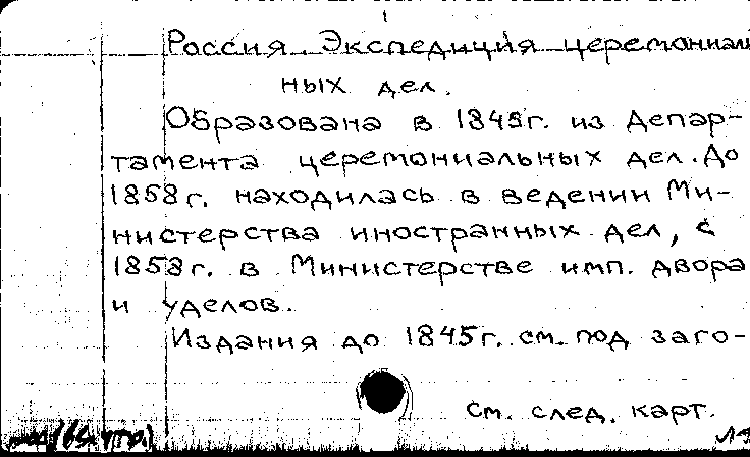 Россия. Экспедиция церемониаль
ных дел.
Образована в 1845г. из Депар-
тамента церемониальных дел. До
1858г. находилась в ведении Ми-
нистерства иностранных дел, с
1858г. в Министерстве имп. двора
и уделов.
Издания до 1845г. см. под заго-
см. след. карт.